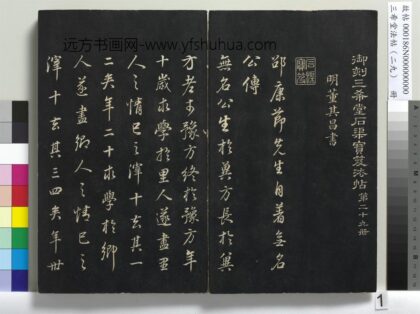 御刻三希堂石渠寶笈法帖 第二十九冊
明董其昌書
邵康節先生自著無名
公傳
無名公生於冀方長於冀
方老於豫方終於豫方年
十歲求學於里人遂盡里
人之情己之滓十去其一
二矣年二十求學於鄉
人遂盡鄉人之情己之
滓十去其三四矣年卅
远方书画网-www.yfshuhua.com
故帖 000186N000000000
三希堂法帖（二九） 冊
1